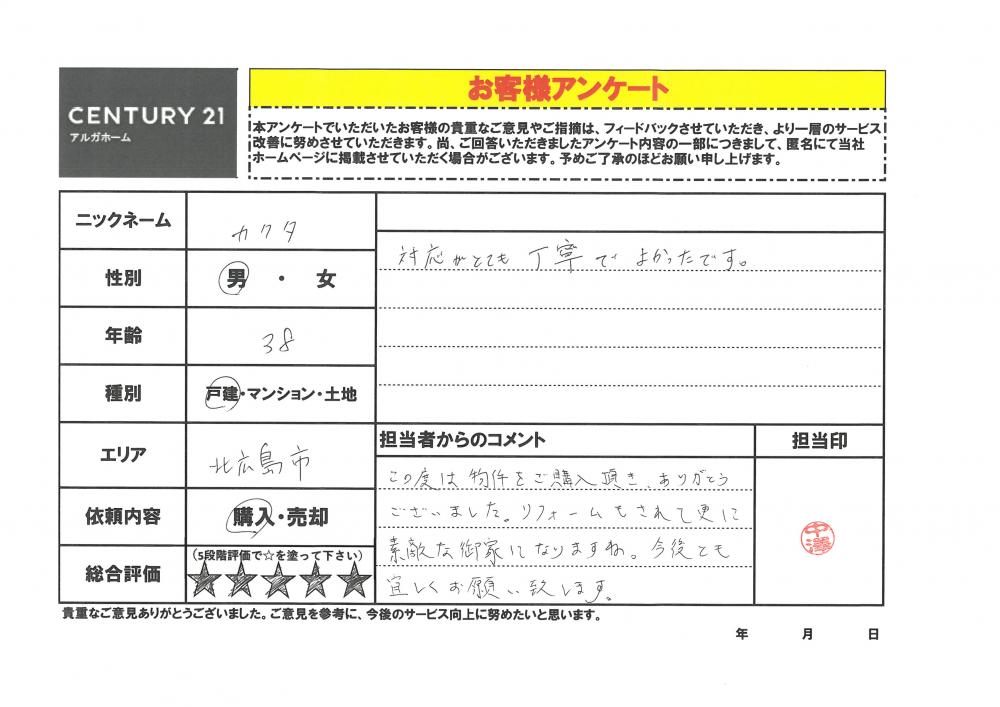 CENTURY 21
アルガホーム
お客様アンケート
本アンケートでいただいたお客様の貴重なご意見やご指摘は、フィードバックさせていただき、より一層のサービス
改善に努めさせていただきます。尚、ご回答いただきましたアンケート内容の一部につきまして、匿名にて当社
ホームページに掲載させていただく場合がございます。予めご了承のほどお願い申し上げます。
ニックネーム
カクタ
性別
男・女
年齢
38
種別
戸建・マンション・土地
エリア
北広島市
依頼内容
購入・売却
総合評価
(5段階評価で☆を塗って下さい)
★★★★★
対応がとても丁寧でよかったです。
担当者からのコメント
この度は物件をご購入頂き、ありがとう
ございました。リフォームもされて更に
素敵な御家になりますね。今後とも
宜しくお願い致します。
担当印
中澤
貴重なご意見ありがとうございました。ご意見を参考に、今後のサービス向上に努めたいと思います。
年 月 日